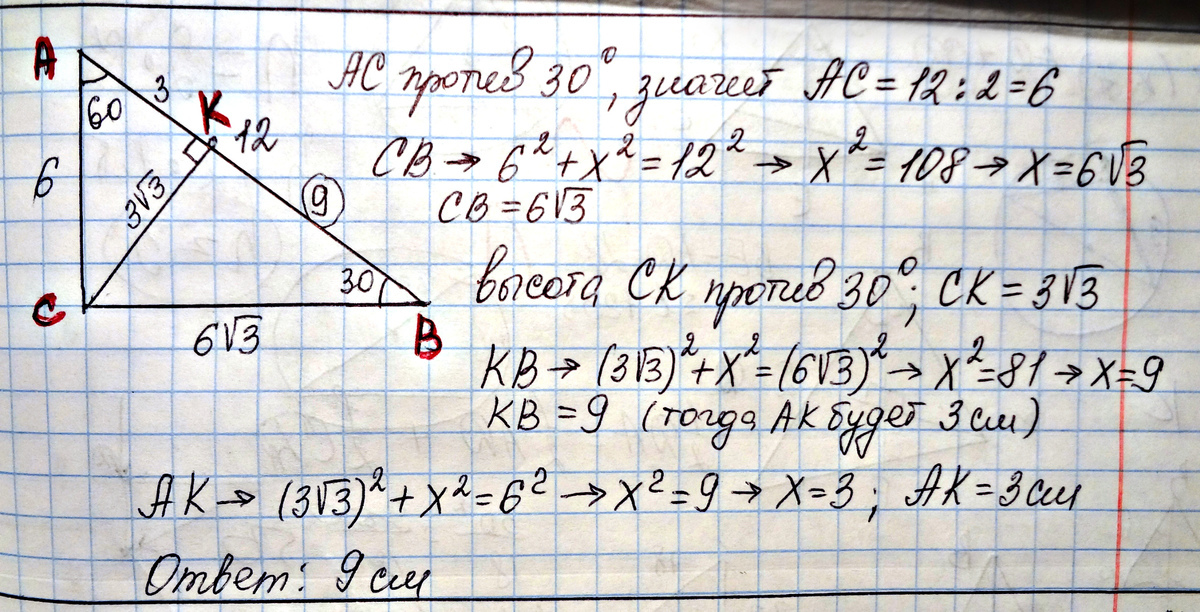 A
60
3
K
12
6
3√3
9
30
C
6√3
B
AC против 30°, значит AC = 12 : 2 = 6
CB → 6² + x² = 12² → x² = 108 → x = 6√3
CB = 6√3
высота CK против 30°; CK = 3√3
KB → (3√3)² + x² = (6√3)² → x² = 81 → x = 9
KB = 9 (тогда AK будет 3 см)
AK → (3√3)² + x² = 6² → x² = 9 → x = 3; AK = 3 см
Ответ: 9 см